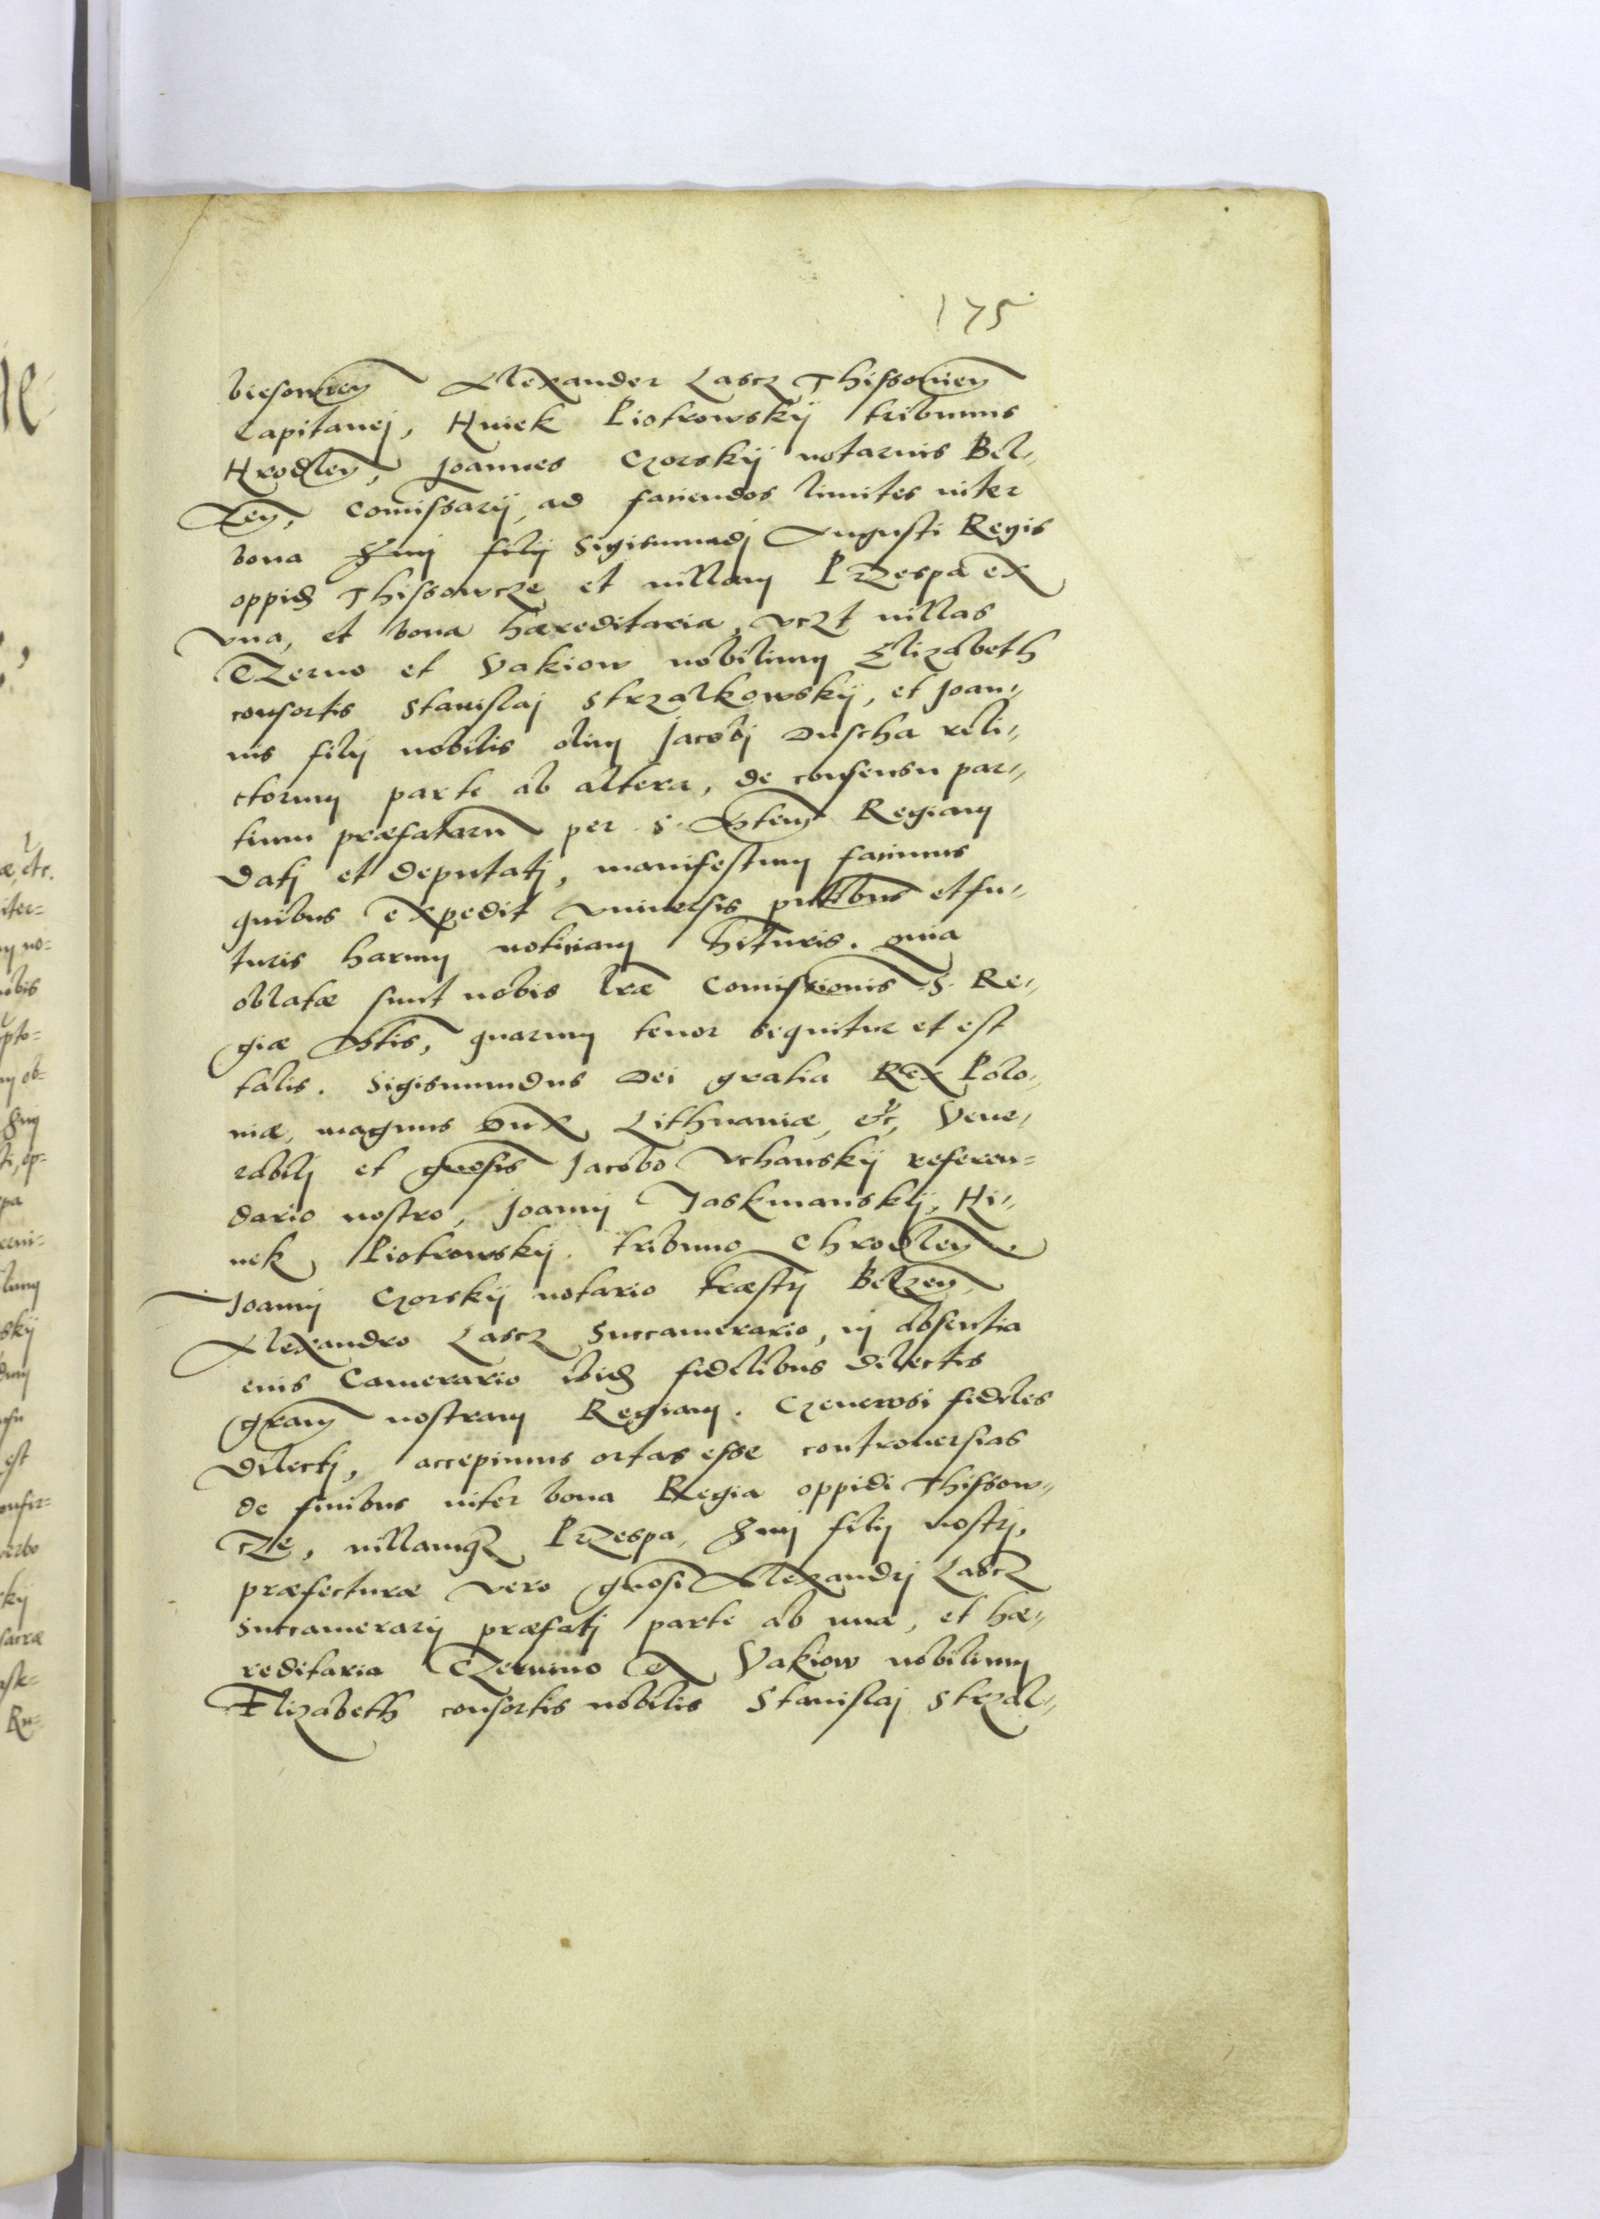 175
Alexander Lascz Thissouien
Capitanej, Hiniek Piotrowskÿ tribunus
Hrodlen, Joannes Czorskÿ notarius Bel-
zen, Comissarij ad faciendos limites inter
bona Smj filij Sigismundj Augusti Regis
oppid Thissowcze et villam Przespa ex
vna, et bona hæreditaria, vczt villas
Czerno et Vakiow nobilium Elizabeth
consortis Stanislaj Strzalkowskÿ, et Joan-
nis filij nobilis olim Jacobj Duscha reli-
ctorum parte ab altera, de consensu par-
tium præfataru per S. Mtem Regiam
datj et deputatj, manifestum facimus
quibus expedit vniuersis pntibus et fu-
turis harum notitiam hituris. quia
oblatæ sunt nobis lræ Comissionis S. Re-
giæ Mtis, quarum tenor sequitur et est
talis. Sigismundus Dei gratia Rex Polo-
niæ, magnus Dux Lithuaniæ, etc, Vene-
rabilj et gnosis Jacobo Vchanskÿ referen-
dario nostro, Joannj Jaskmanskÿ, Hi-
nek Piotrowskÿ tribuno Chrodlen,
Joannj Czorskÿ notario træstrj Belzen
Alexandro Lascz Succamerario, in absentia
eius Camerario ibid fidelibus dilectis
gram nostram Regiam. Generosi fideles
dilectj, accepimus ortas esse controuersias
de finibus inter bona Regia oppidi Thissow-
cze, villamqz Przespa, Smj filij nostrj,
præfecturæ vero gnosi Alexandrj Lascz
Succamerarij præfatj parte ab vna, et hæ-
reditaria Czernino et Vakiow nobilium
Elizabeth consortis nobilis Stanislaj Strzal-